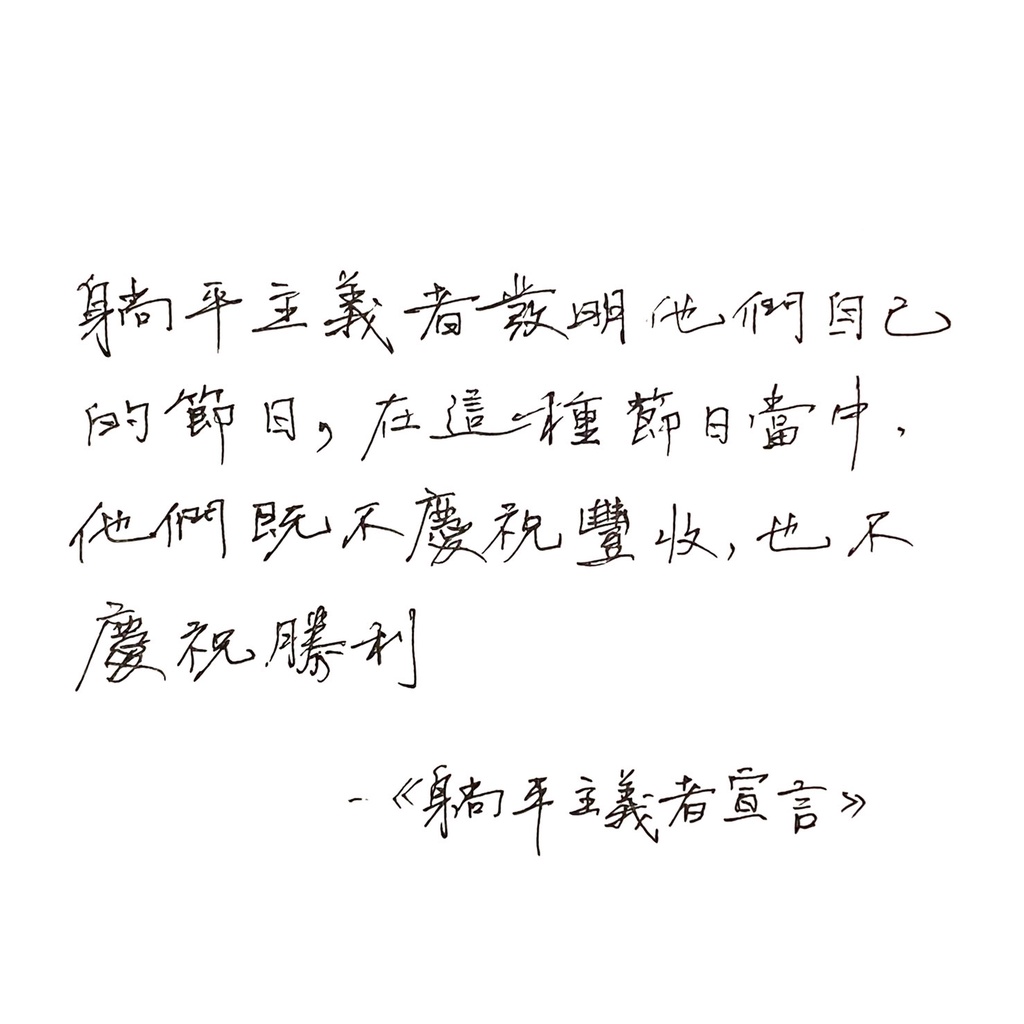 躺平主義者發明他們自己
的節日，在這種節日當中，
他們既不慶祝豐收，也不
慶祝勝利
-《躺平主義者宣言》